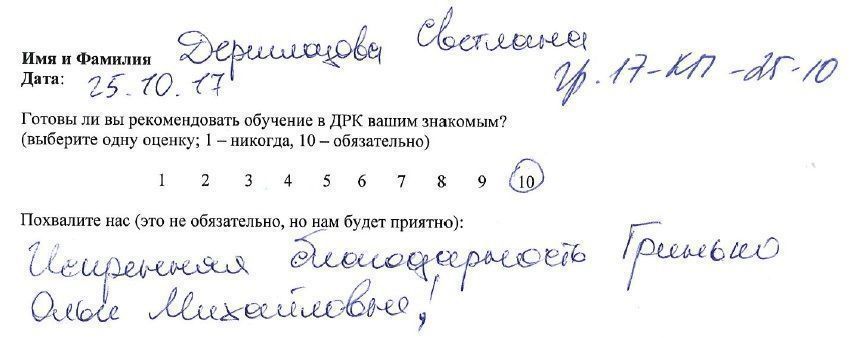 Имя и Фамилия Дермлазова Светлана
Дата: 25.10.17 гр.17-КП-25-10
Готовы ли вы рекомендовать обучение в ДРК вашим знакомым?
(выберите одну оценку; 1 – никогда, 10 – обязательно)
1 2 3 4 5 6 7 8 9 10
Похвалите нас (это не обязательно, но нам будет приятно):
Искренняя благодарность Гринько
Ольги Михайловны!